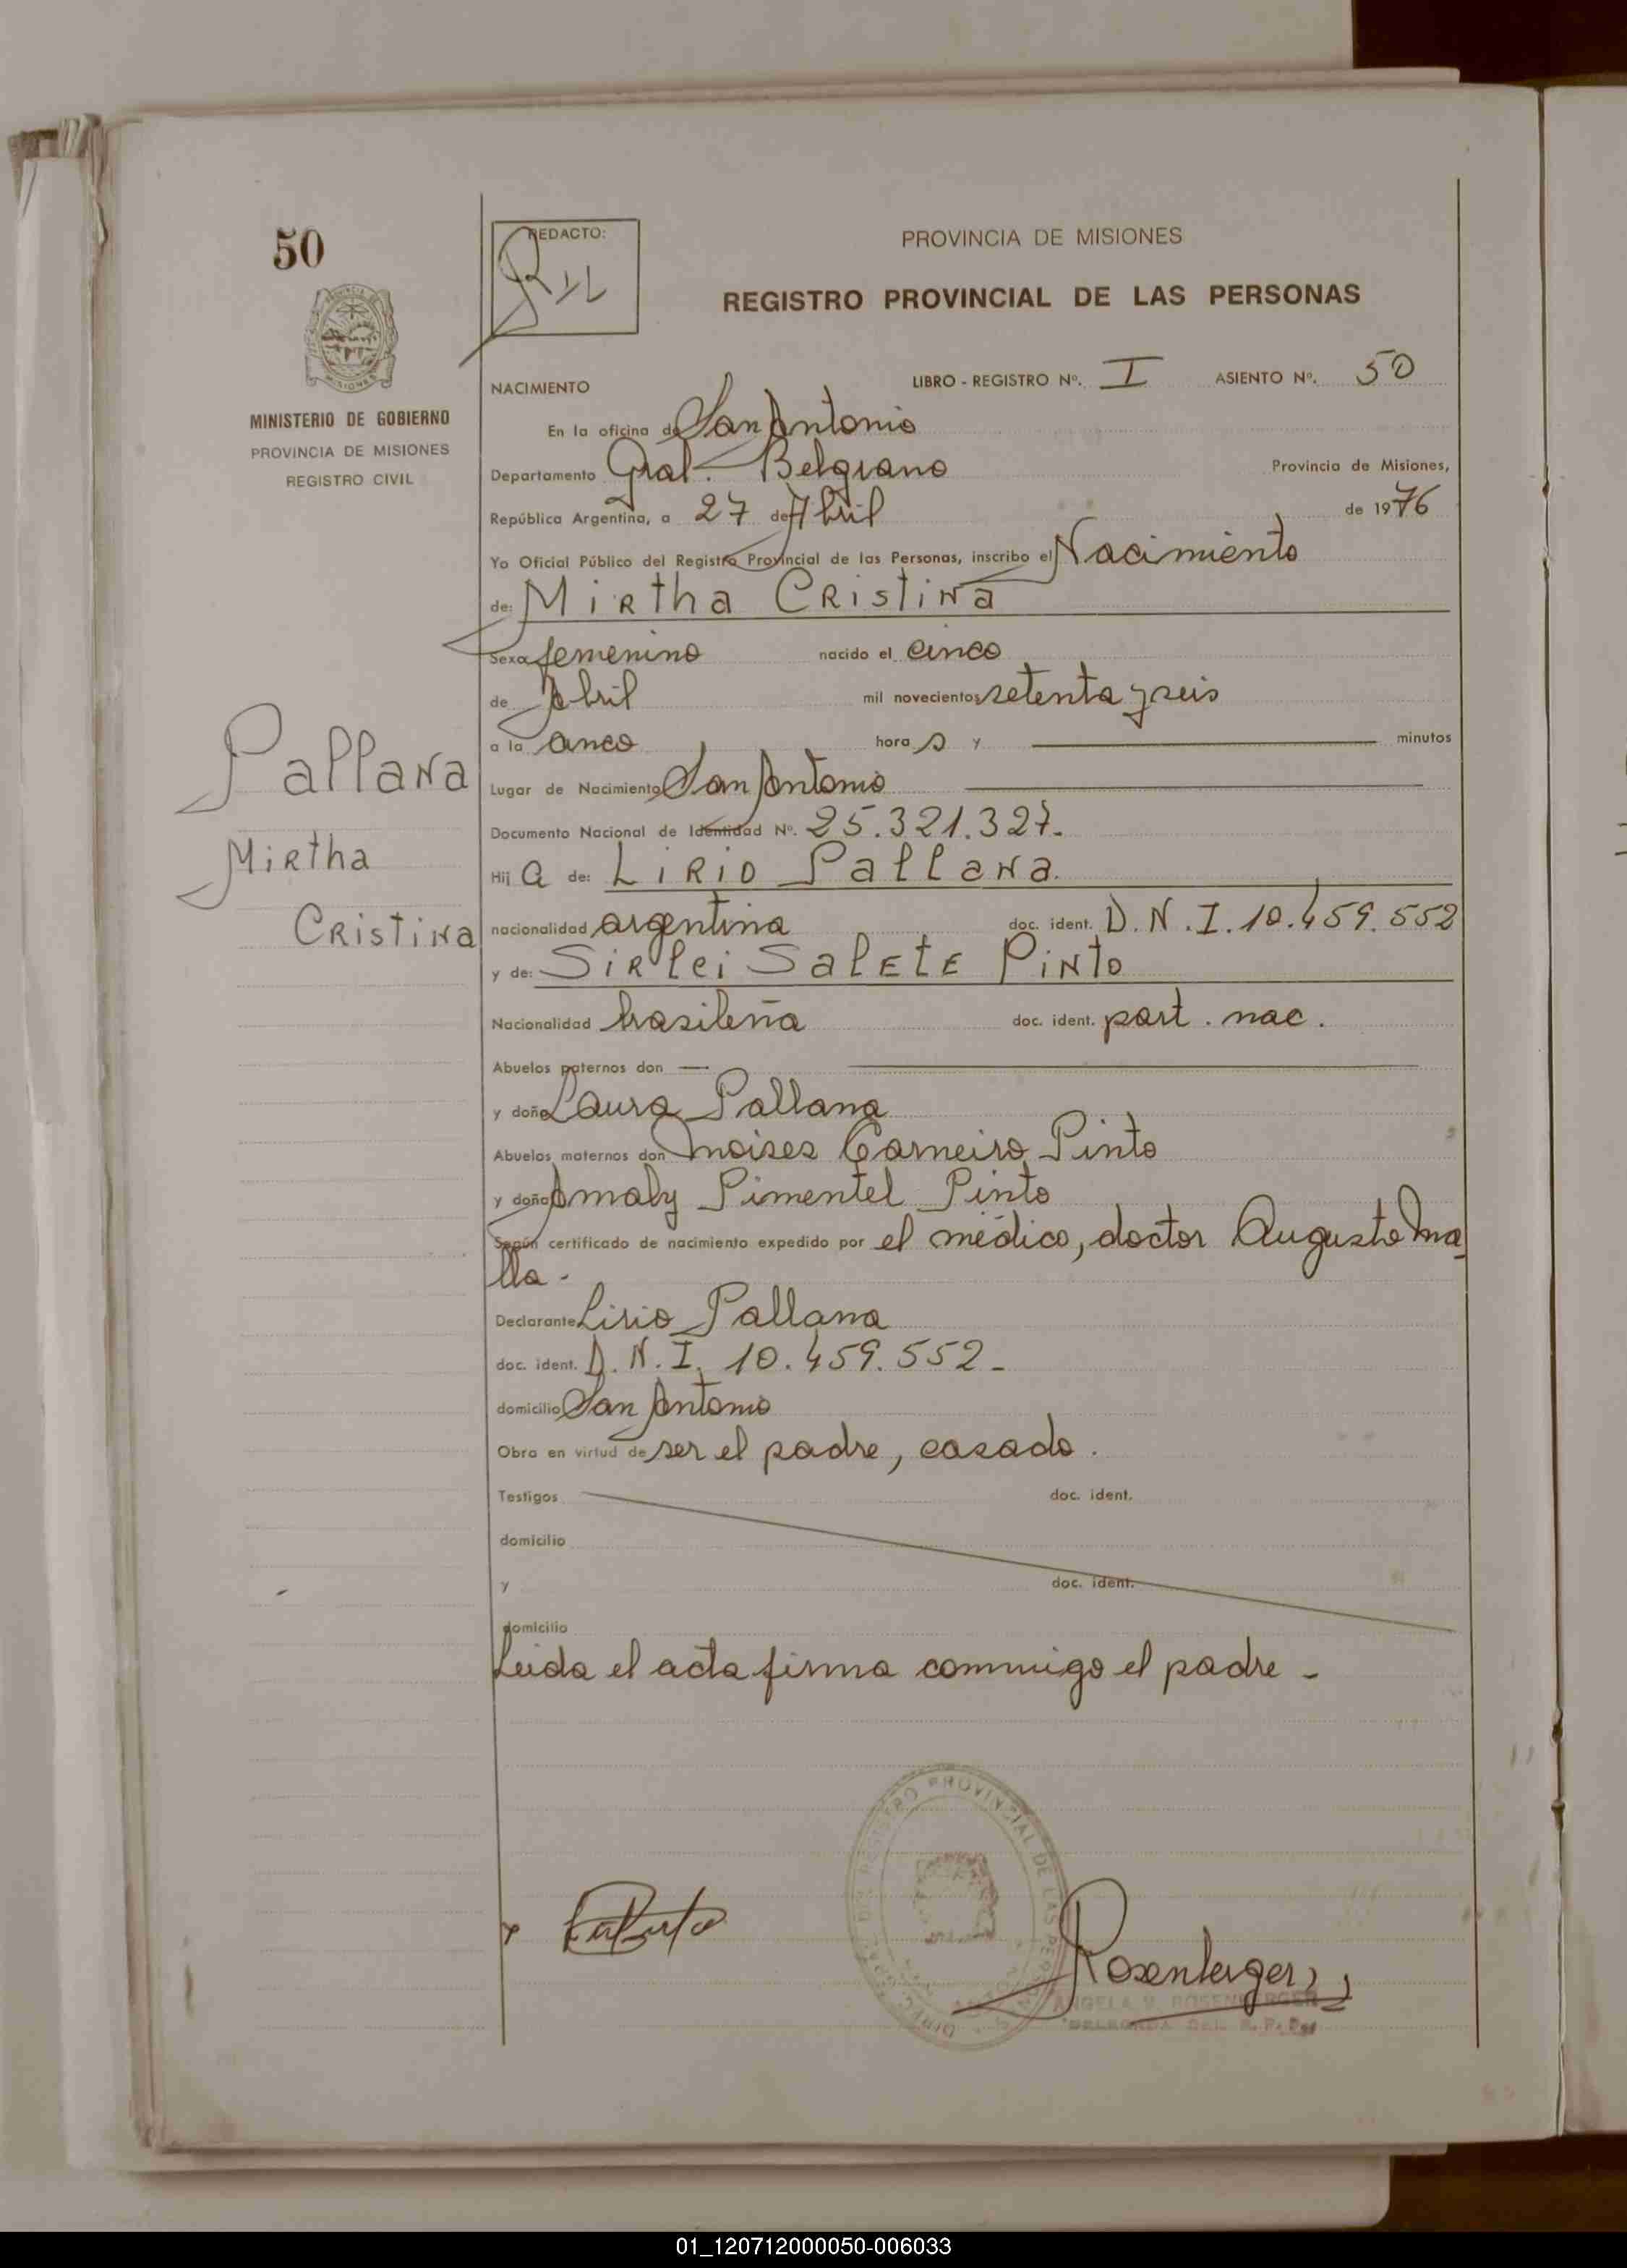 50
REDACTO:
PROVINCIA DE MISIONES
REGISTRO PROVINCIAL DE LAS PERSONAS
MINISTERIO DE GOBIERNO
PROVINCIA DE MISIONES
REGISTRO CIVIL
NACIMIENTO LIBRO - REGISTRO Nº. I ASIENTO Nº. 50
En la oficina de San Antonio
Departamento Gral. Belgrano Provincia de Misiones,
República Argentina, a 27 de Abril de 1976
Yo Oficial Público del Registro Provincial de las Personas, inscribo el Nacimiento
de: Mirtha Cristina
Sexo femenino nacido el cinco
de Abril mil novecientos setenta y seis
a la cinco hora s y minutos
Lugar de Nacimiento San Antonio
Documento Nacional de Identidad Nº. 25.321.327.
Hij a de: Lirio Pallana.
nacionalidad argentina doc. ident. D.N.I. 10.459.552
y de: Sirlei Salete Pinto
Nacionalidad brasileña doc. ident. part. nac.
Abuelos paternos don —
y doña Laura Pallana
Abuelos maternos don Moises Carneiro Pinto
y doña Amaly Pimentel Pinto
Según certificado de nacimiento expedido por el médico, doctor Augusto Ma-
lla.-
Declarante Lirio Pallana
doc. ident. D.N.I. 10.459.552-
domicilio San Antonio
Obra en virtud de ser el padre, casado.
Testigos doc. ident.
domicilio
y doc. ident.
domicilio
Leida el acta firma conmigo el padre-
Pallana
Mirtha
Cristina
Rosenberger
ANGELA V. ROSENBERGER
DELEGADA DEL R.P.P.
01_120712000050-006033